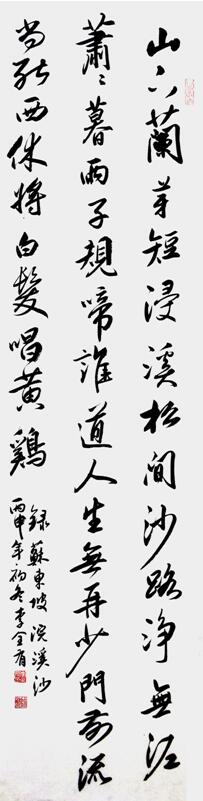 山下蘭芽短浸溪松間沙路淨無泥
蕭〻暮雨子規啼誰道人生無再少門前流
尚能西休將白髮唱黃鷄
錄蘇東坡浣溪沙
丙申年初冬李全有